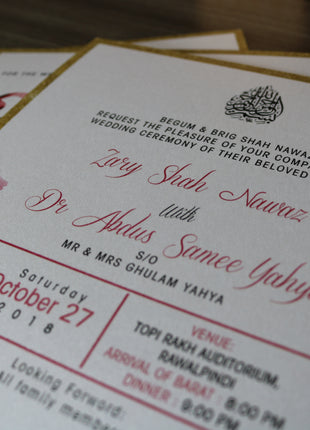 FOR THE
BEGUM & BRIG SHAH NAWAZ
REQUEST THE PLEASURE OF YOUR COMP
WEDDING CEREMONY OF THEIR BELOVED
Zary Shah Nawaz
With
Dr Abdus Samee Yahya
S/O
MR & MRS GHULAM YAHYA
Saturday
October 27
2018
VENUE:
TOPI RAKH AUDITORIUM,
RAWALPINDI
ARRIVAL OF BARAT : 8:00 PM
DINNER : 9:00 PM
Looking Forward:
All family membe